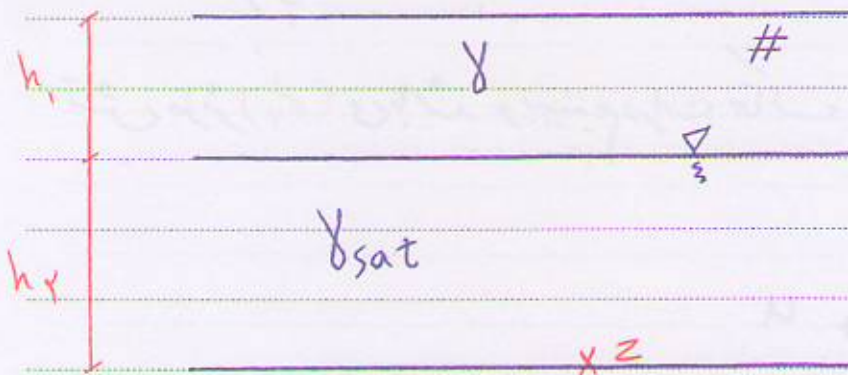 h۱
γ
#
γsat
h۲
x z